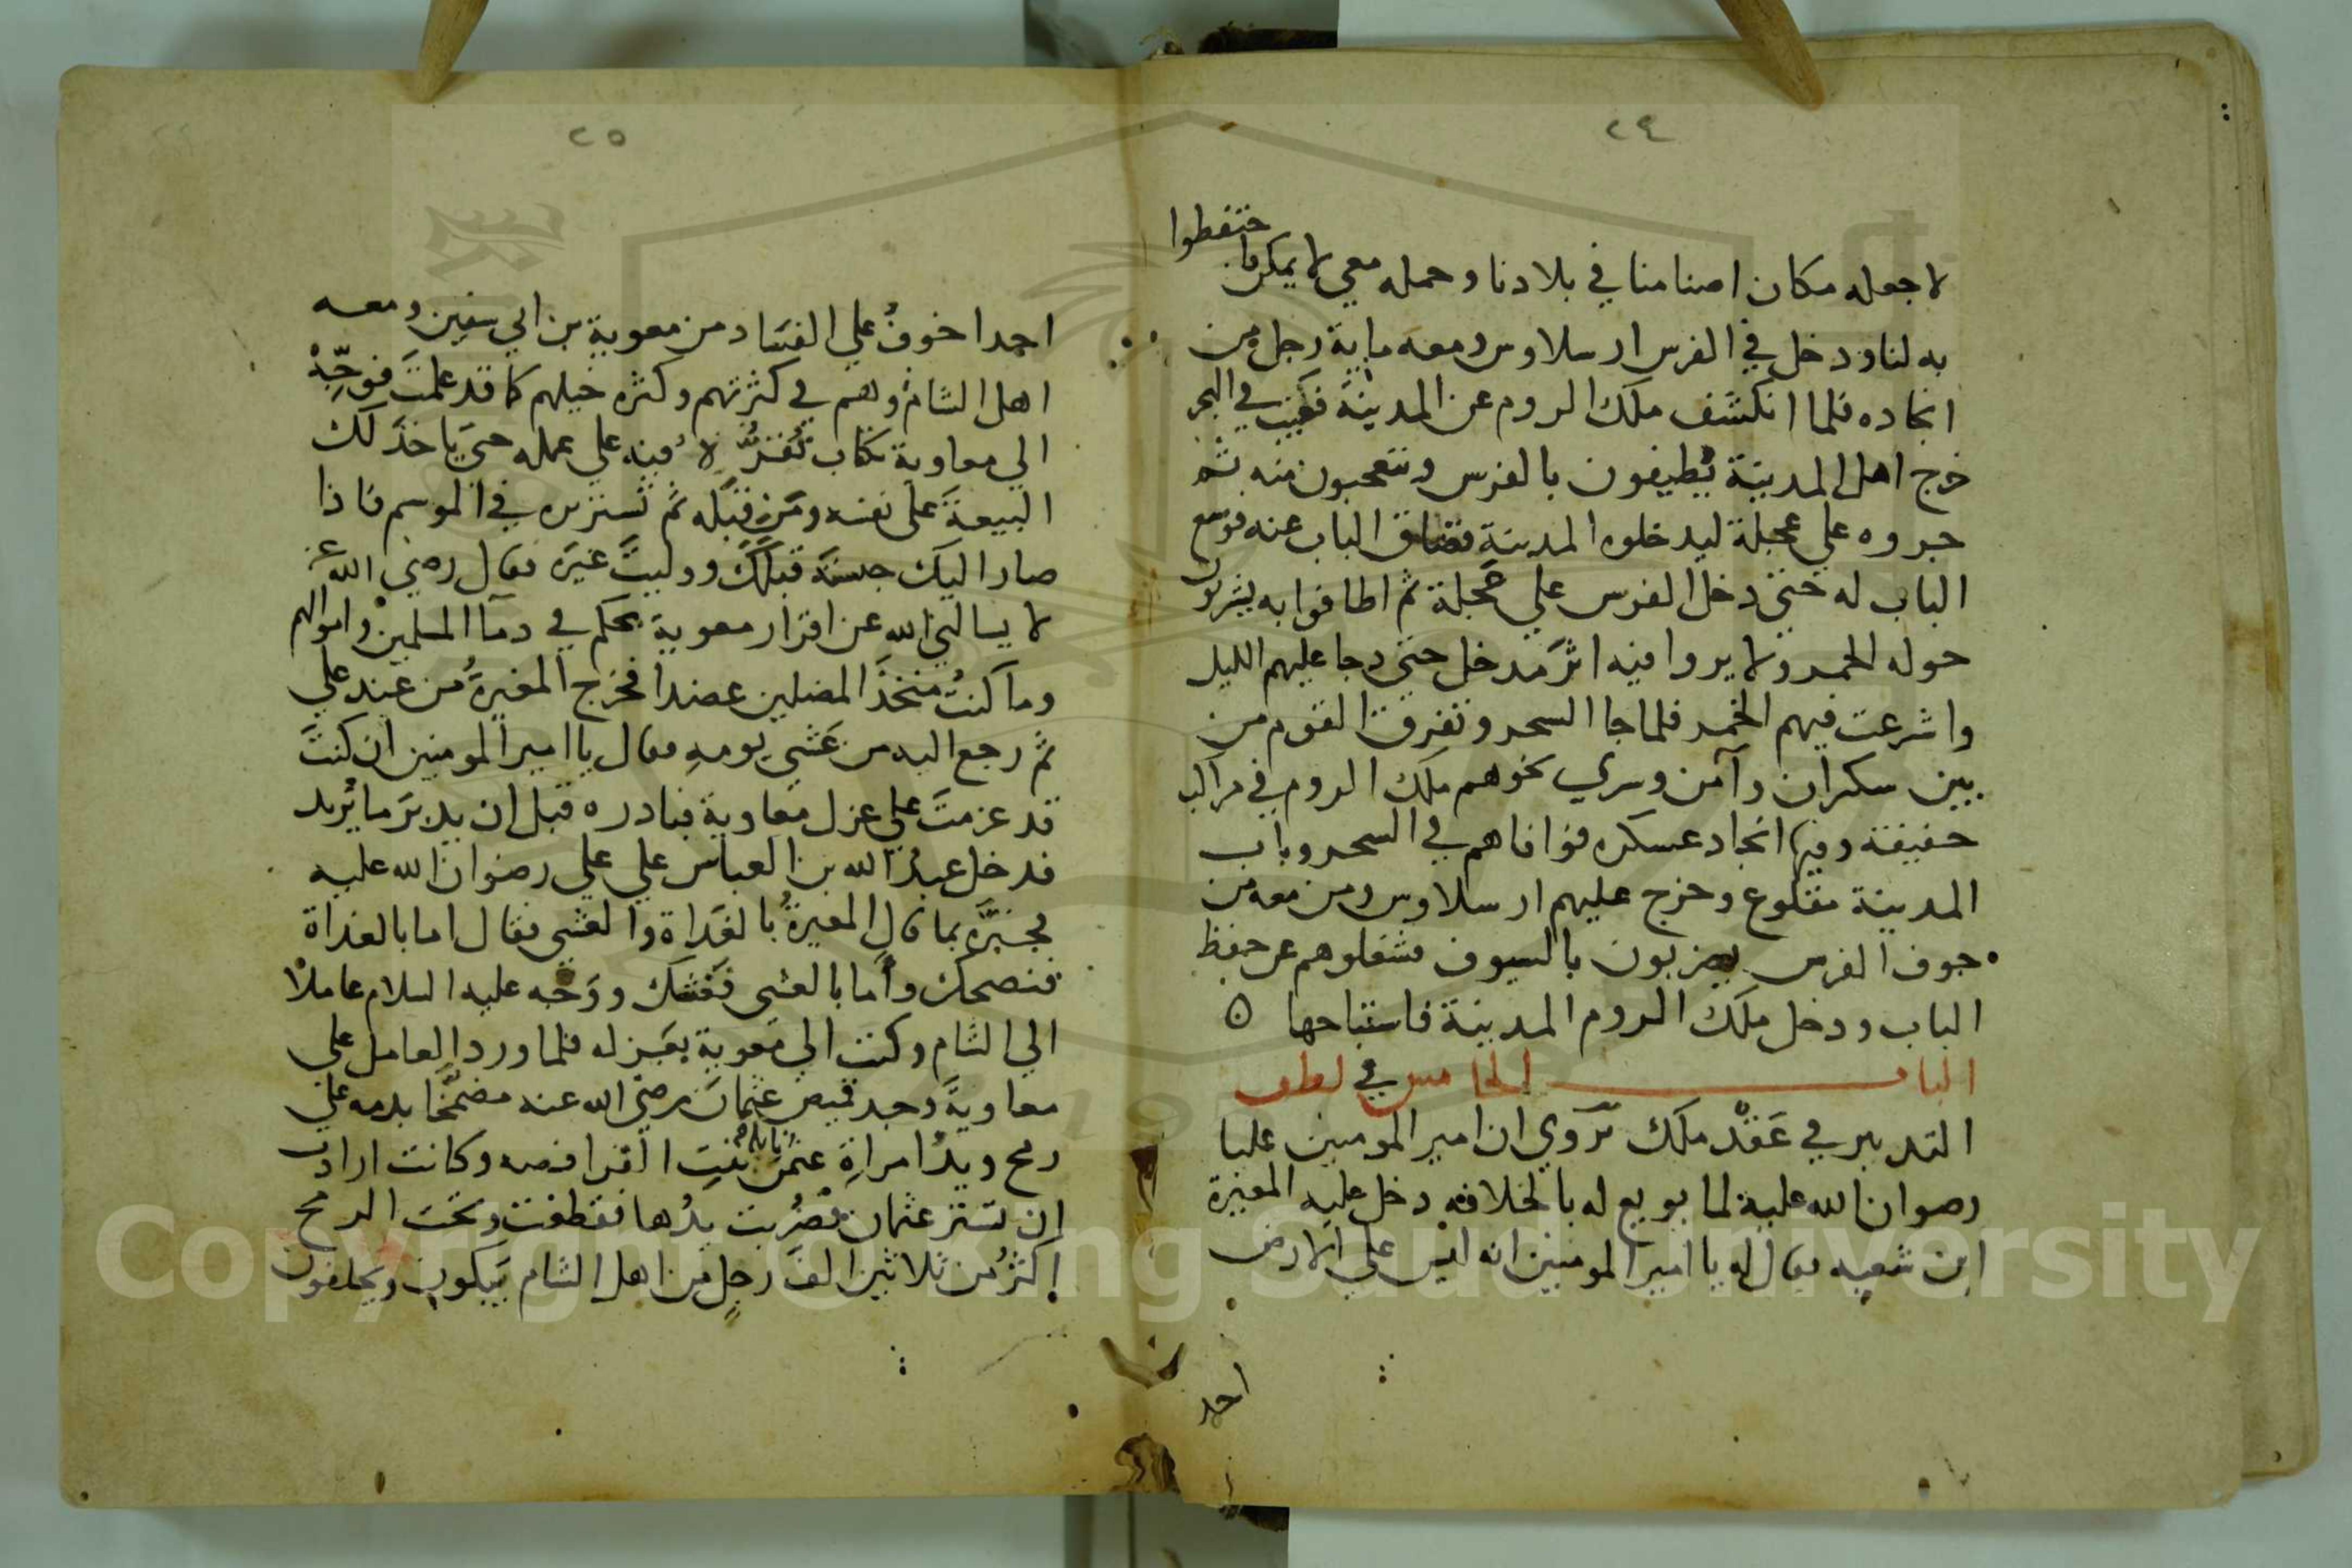 ٢٤
لاجعله مكان اصنامنا في بلادنا وحمله معي لا يمكن فاحتفظوا
به لنا ودخل في الفرس ارسلاوس ومعه ماية رجل من
انجاده فلما انكشف ملك الروم عن المدينة فغيب في البحر
خرج اهل المدينة يطيفون بالفرس ويتعجبون منه ثم
جروه علي عجلة ليدخلوه المدينة فضاق الباب عنه فوسع
الباب له حتى دخل الفرس علي عجلة ثم اطافوا به يشربون
حوله الخمر ولا يروا فيه اثر مدخل حتى دجا عليهم الليل
واشرعت فيهم الخمر فلما جا السحر وتفرق القوم من
بين سكران وآمن وسري نحوهم ملك الروم في مراكب
خفيفة وفيها انجاد عسكره فوافاهم في السحر وباب
المدينة مقلوع وخرج عليهم ارسلاوس ومن معه من
جوف الفرس يضربون بالسيوف فشغلوهم عن حفظ
الباب ودخل ملك الروم المدينة فاستباحها ٥
الباب الخامس في لطف
التدبير في عقد ملك تروي ان امير المومنين عليا
رضوان الله عليه لما بويع له بالخلافة دخل عليه المغيرة
ابن شعبه فقال له يا امير المومنين انه ليس علي الارض
احد
٢٥
احدا خوف علي الفساد من معوية بن ابي سفين ومعه
اهل الشام وهم في كثرتهم وكثره خيلهم كما قد علمت فوجّه
الي معاوية بكتاب تقرّه فيه علي عمله حتى ياخذ لك
البيعة على نفسه ومن قبله ثم تستزره في الموسم فاذا
صار اليك حبسته قبلك ووليت غيره فقال رضي الله عنه
لا يسالني الله عن اقرار معوية يحكم في دما المسلمين واموالهم
وما كنت متخذ المضلين عضدا فخرج المغيرة من عند علي
ثم رجع اليه من عشي يومه فقال يا امير المومنين ان كنت
قد عزمت علي عزل معاوية فبادره قبل ان يدبر ما يريد
فدخل عبد الله بن العباس علي علي رضوان الله عليه
فخبّره بما قال المغيرة بالغداة والعشي فقال اما بالغداة
فنصحك وأما بالعشي فغشك ووجه عليه السلام عاملا
الي الشام وكتب الي معوية بعزله فلما ورد العامل علي
معاوية وجد قميص عثمان رضي الله عنه مضمّخا بدمه علي
رمح ويد امراة عثمن نايلة بنت الفرافصه وكانت ارادت
ان تستر عثمان فضربت يدها فقطعت وتحت الرمح
اكثر من ثلاثين الف رجل من اهل الشام يبكون ويحلفون
Copyright © King Saud University